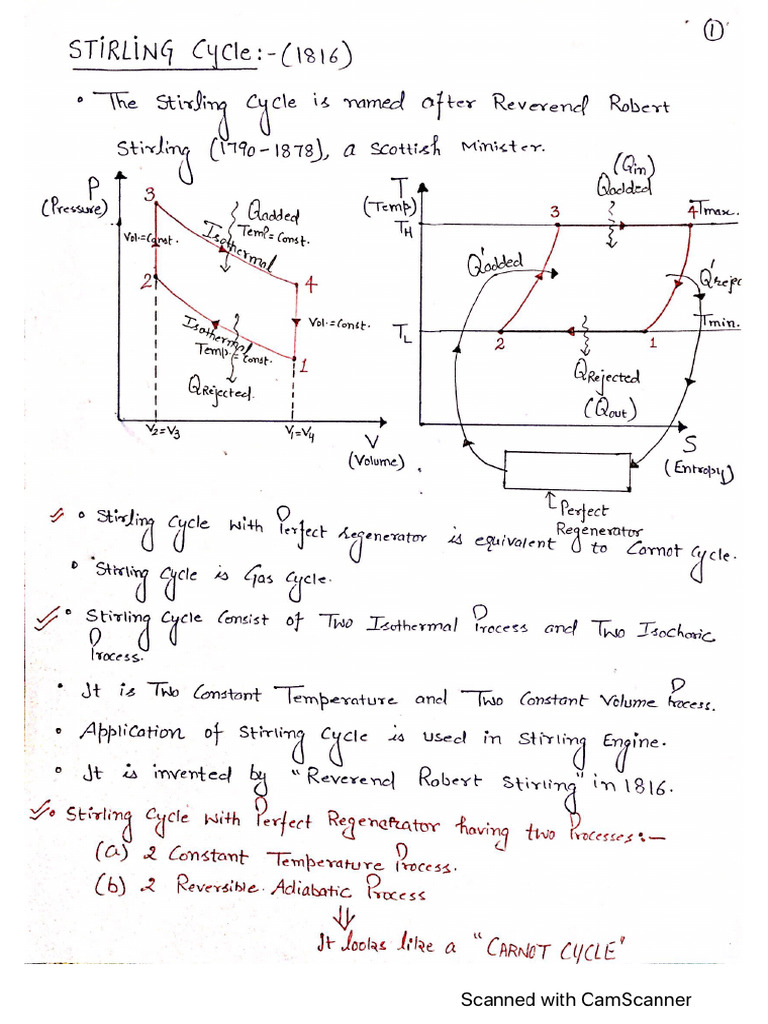 ①
STIRLING Cycle:-(1816)
• The Stirling Cycle is named after Reverend Robert
Stirling (1790-1878), a Scottish Minister.
P
(Pressure)
3
Qadded
Temp=Const.
Isothermal
Vol.=Const.
2
4
Vol=Const.
Isothermal
Temp=Const.
1
QRejected.
V2=V3
V1=V4
V
(Volume)
T
(Temp)
(Qin)
Qadded
3
4
Tmax.
TH
Q'added
Q'rejec
TL
2
1
Tmin.
QRejected
(Qout)
S
(Entropy)
Perfect
Regenerator
• Stirling Cycle with Perfect regenerator is equivalent to Carnot Cycle.
• Stirling Cycle is Gas Cycle.
• Stirling Cycle Consist of Two Isothermal Process and Two Isochoric
Process.
• It is Two Constant Temperature and Two Constant Volume Process.
• Application of Stirling Cycle is used in Stirling Engine.
• It is invented by "Reverend Robert Stirling" in 1816.
• Stirling Cycle with Perfect Regenerator having two Processes:-
(a) 2 Constant Temperature Process.
(b) 2 Reversible Adiabatic Process
⇓
It looks like a "CARNOT CYCLE"
Scanned with CamScanner